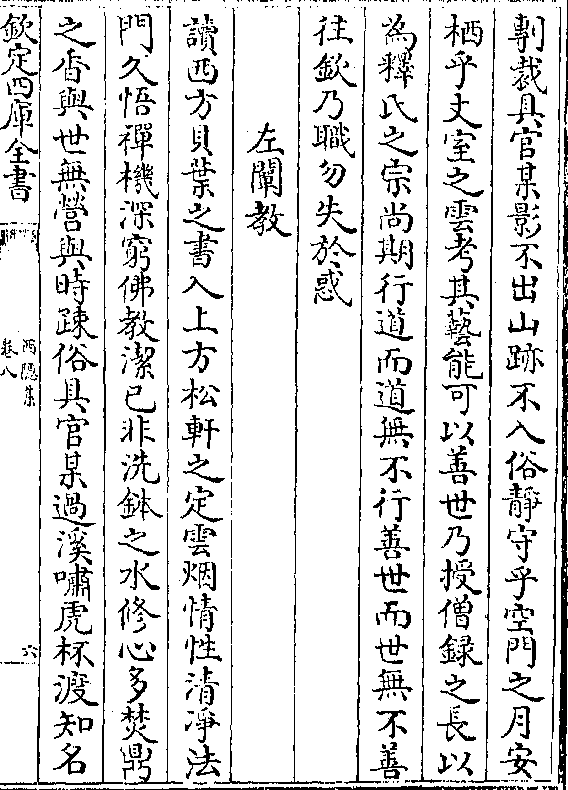 剸裁具官某影不出山跡不入俗靜守乎空門之月安
栖乎丈室之雲考其藝能可以善世乃授僧録之長以
為釋氏之宗尚期行道而道無不行善世而世無不善
往欽乃職勿失於惑
左闡教
讀西方貝葉之書入上方松軒之定雲烟情性清凈法
門久悟禪機深窮佛教潔已非洗鉢之水修心多焚鼎
之香與世無營與時踈俗具官某過溪嘯虎杯渡知名
欽定四庫全書
西隱集
卷八
六